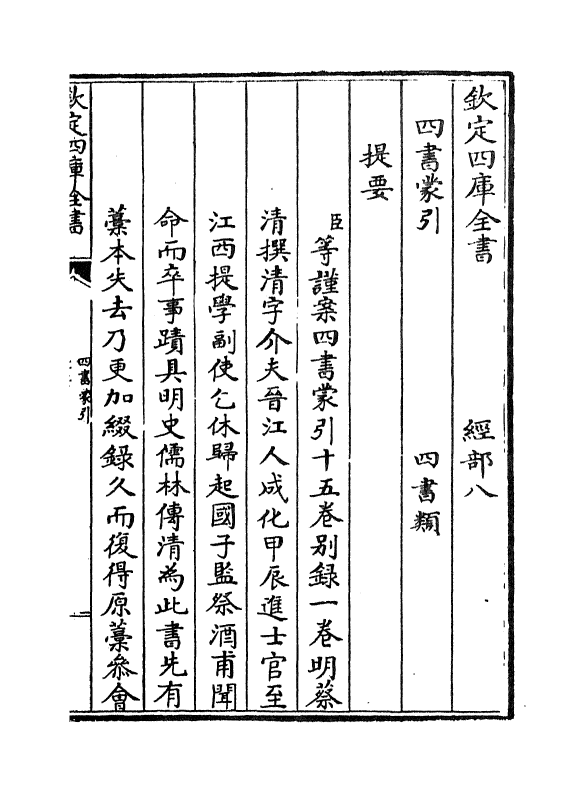 欽定四庫全書　經部八
四書蒙引　四書類
提要
臣等謹案四書蒙引十五卷别録一卷明蔡
清撰清字介夫晉江人成化甲辰進士官至
江西提學副使乞休歸起國子監祭酒甫聞
命而卒事蹟具明史儒林傳清為此書先有
藁本失去乃更加綴錄久而復得原藁叅會
欽定四庫全書
四書蒙引